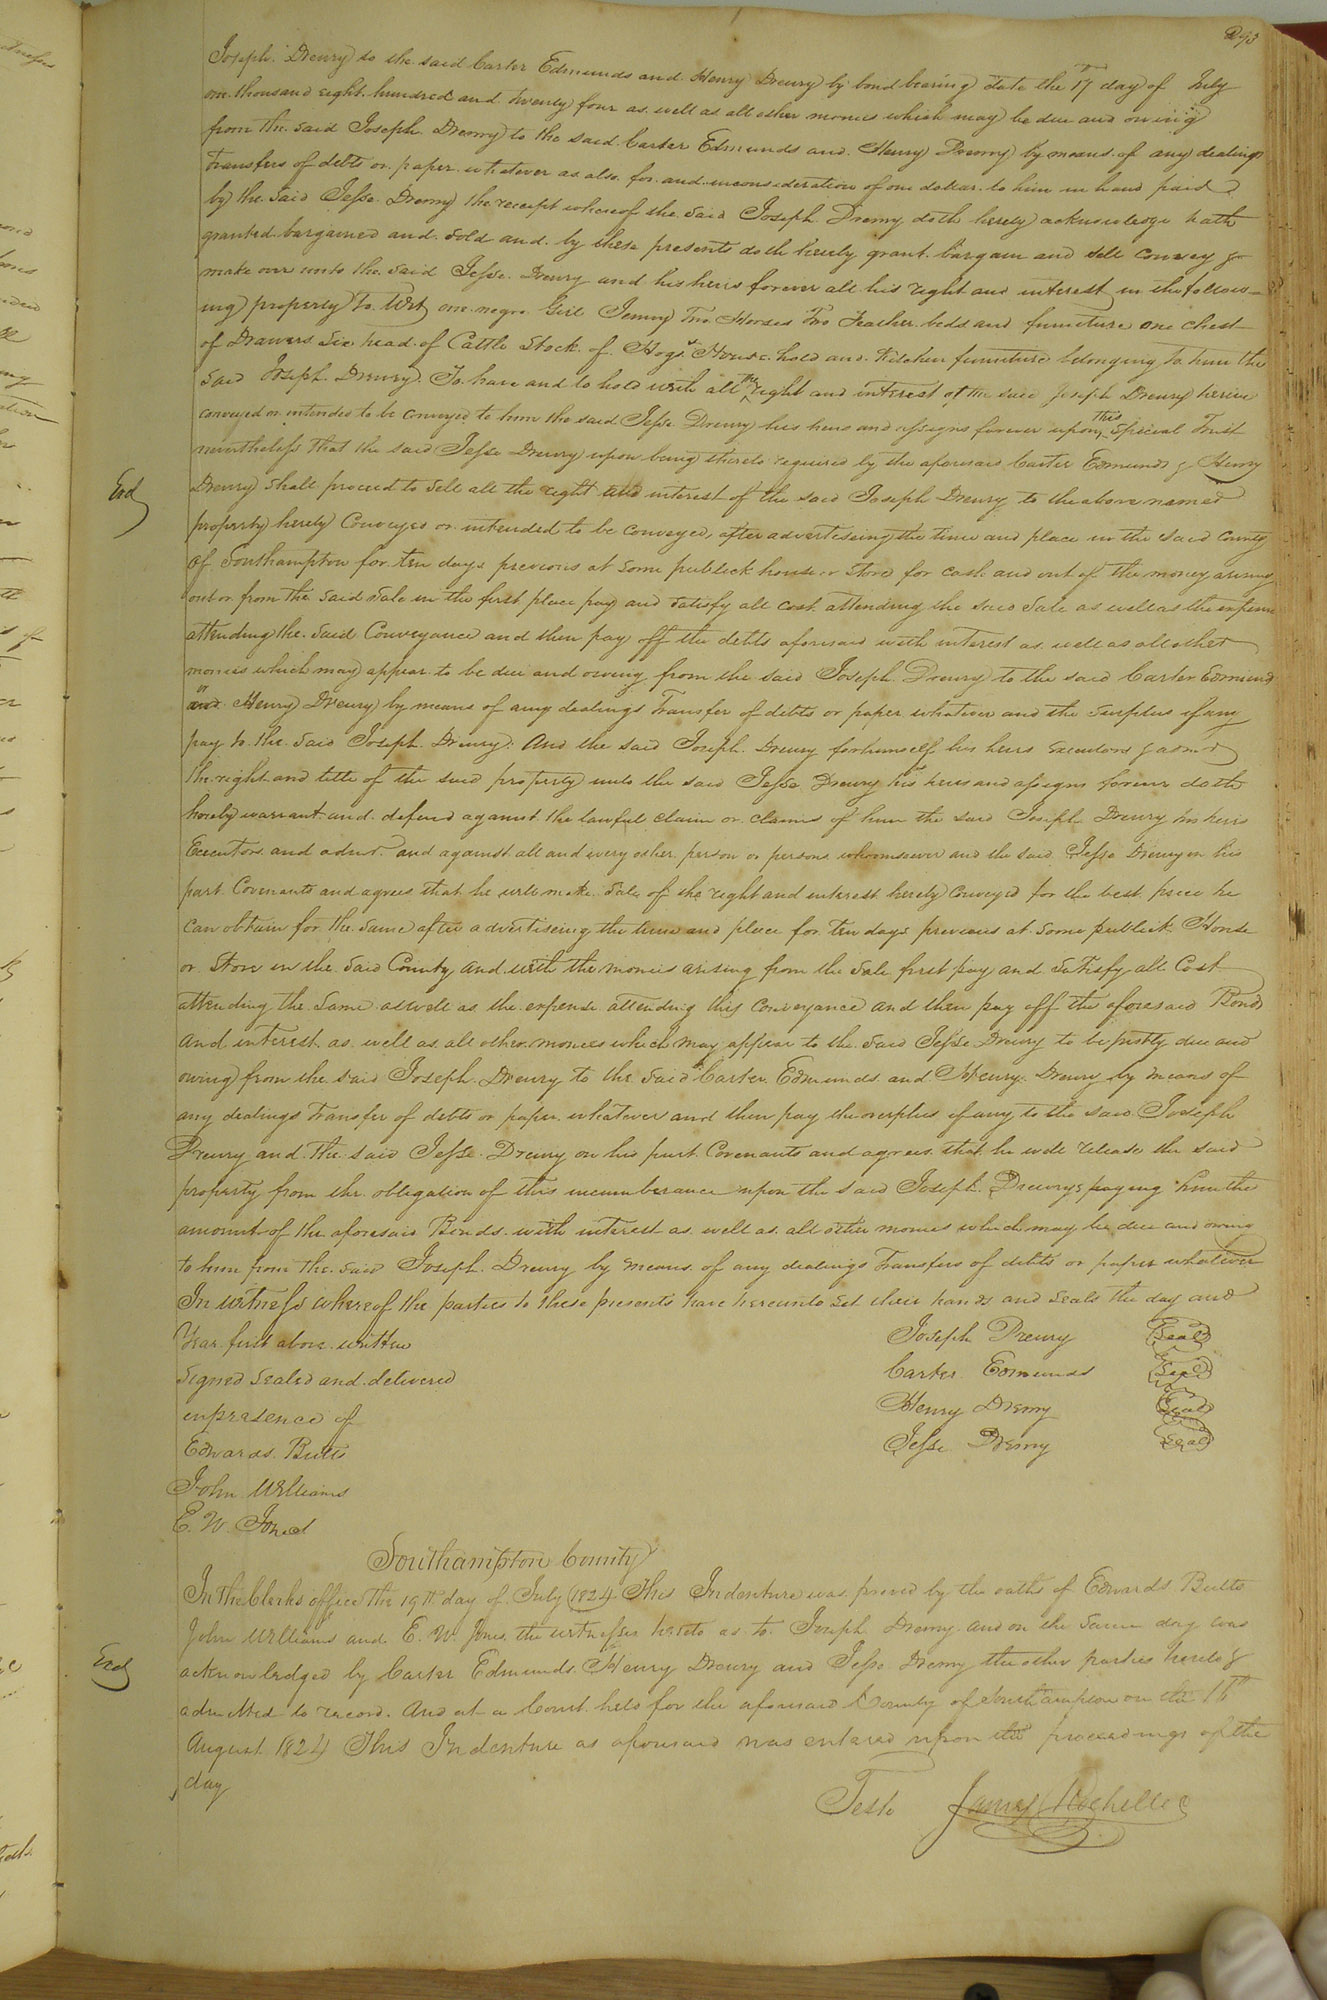 293
Joseph Drewry to the said Carter Edmunds and Henry Drewry by bond bearing date the 17th day of July
one thousand eight hundred and twenty four as well as all other monies which may be due and owing
from the said Joseph Drewry to the said Carter Edmunds and Henry Drewry by means of any dealings
Transfers of debts or paper whatever as also for and inconsideration of one dollar to him in hand paid
by the said Jesse Drewry the receipt whereof the said Joseph Drewry doth hereby acknowledge hath
granted bargained and sold and by these presents doth hereby grant bargain and sell convey &
make over unto the said Jesse Drewry and his heirs forever all his right and interest in the follow-
ing property To Wit one negro Girl Jenny Two Horses Two Feather beds and furniture one chest
of Drawers Six head of Cattle Stock of Hogs & House hold and Kitchen furniture belonging to him the
said Joseph Drewry. To have and to hold with all the right and interest of the said Joseph Drewry herein
conveyed or intended to be conveyed to him the said Jesse Drewry his heirs and assigns forever upon this special Trust
nevertheless that the said Jesse Drewry upon being thereto required by the aforesaid Carter Edmunds & Henry
Drewry shall proceed to sell all the right and interest of the said Joseph Drewry to the above named
property hereby Conveyed or intended to be conveyed, after advertiseing the time and place in the said County
of Southampton for ten days previous at some publick house or store for cash and out of the money arising
out or from the said sale in the first place pay and satisfy all cost attending the said sale as well as the expense
attending the said Conveyance and then pay off the debts aforesaid with interest as well as all other
monies which may appear to be due and owing from the said Joseph Drewry to the said Carter Edmund
or Henry Drewry by means of any dealings Transfer of debts or paper whatever and the surplus if any
pay to the said Joseph Drewry. And the said Joseph Drewry for himself his heirs Executors & admr
the right and title of the said property unto the said Jesse Drewry his heirs and assigns forever doth
hereby warrant and defend against the lawful claim or claims of him the said Joseph Drewry his heirs
Executors and admr. and against all and every other person or persons whomsoever and the said Jesse Drewry on his
part Covenants and agrees that he will make sale of the right and interest hereby conveyed for the best price he
can obtain for the same after advertising the time and place for ten days previous at some publick House
or Store in the said County and with the monies arising from the sale first pay and satisfy all Cost
attending the same as well as the expense attending this Conveyance and then pay off the aforesaid Bonds
and interest as well as all other monies which may appear to the said Jesse Drewry to be justly due and
owing from the said Joseph Drewry to the said Carter Edmunds and Henry Drewry by means of
any dealings Transfer of debts or paper whatever and then pay the overplus if any to the said Joseph
Drewry and the said Jesse Drewry on his part Covenants and agrees that he will release the said
property from the obligation of this incumberance upon the said Joseph Drewrys paying him the
amount of the aforesaid Bonds with interest as well as all other monies which may be due and owing
to him from the said Joseph Drewry by means of any dealings Transfers of debts or paper whatever
In witness whereof the parties to these presents have hereunto set their hands and seals the day and
Year first above written
Signed Sealed and delivered
in presence of
Edwards Butts
John Williams
E. W. Jones
Joseph Drewry Seal
Carter Edmunds Seal
Henry Drewry Seal
Jesse Drewry Seal
Southampton County
In the Clerks office the 19th day of July 1824 This Indenture was proved by the oaths of Edwards Butts
John Williams and E. W. Jones the witnesses hereto as to Joseph Drewry and on the same day was
acknowledged by Carter Edmunds Henry Drewry and Jesse Drewry the other parties hereto &
admitted to record. And at a Court held for the aforesaid County of Southampton on the 16th
August 1824 This Indenture as aforesaid was entered upon the proceedings of the
day
Teste James Rochelle
Exd
Exd